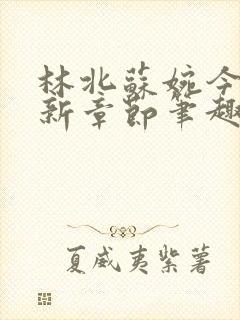 林北蘇婉今
新章節筆趣
夏威夷紫薯